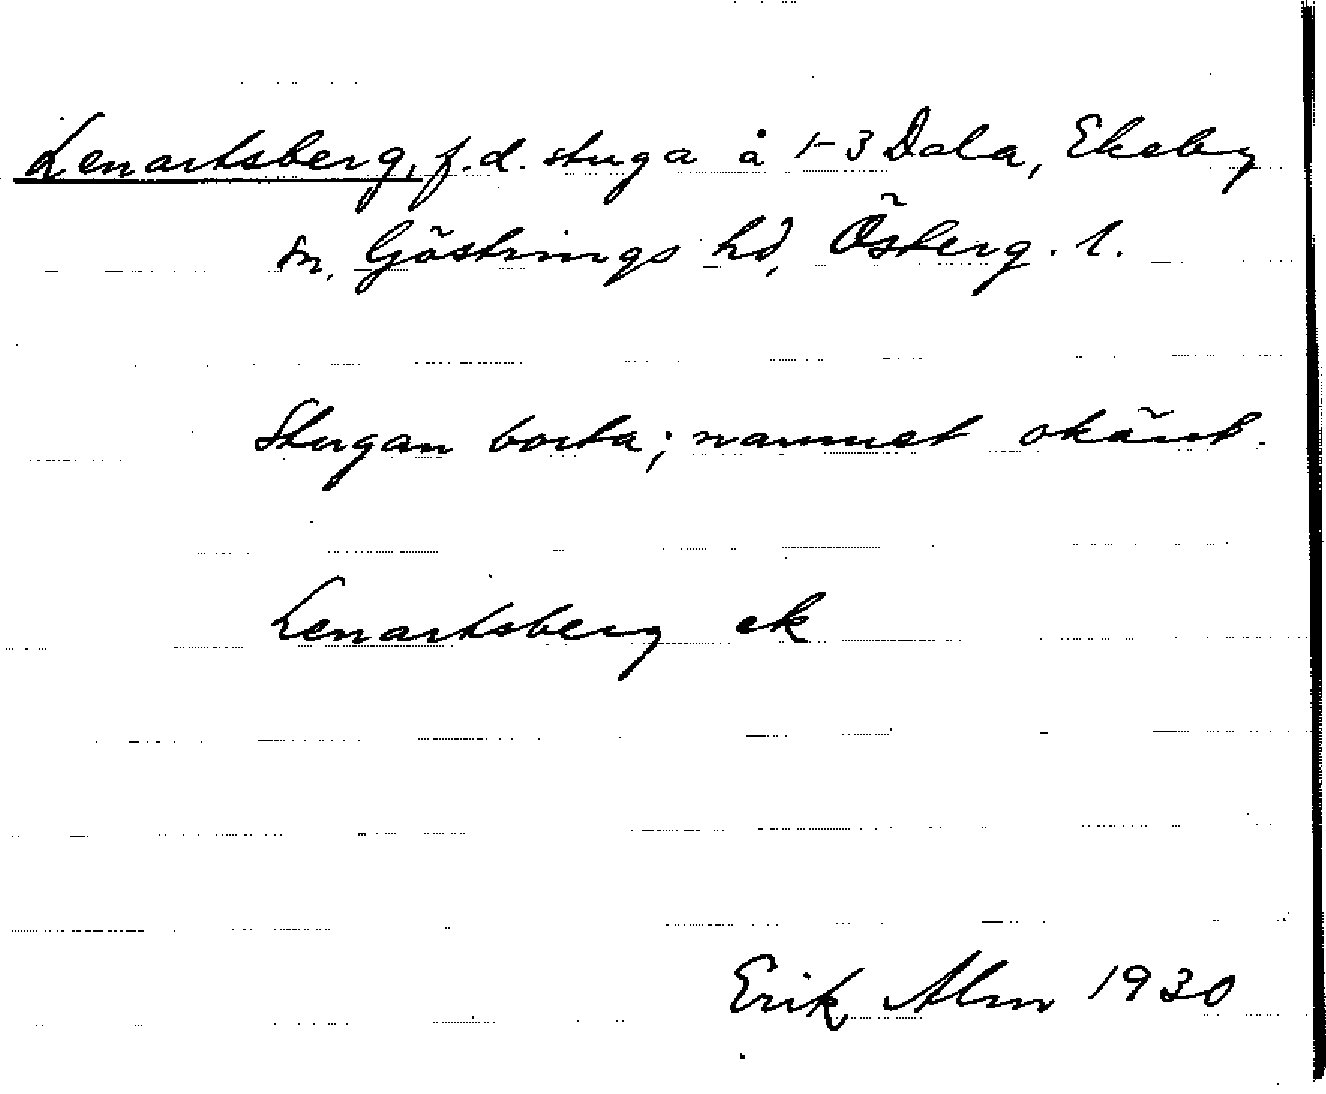 Lenartsberg, f.d. stuga å 1-3 Dala, Ekeby
sn. Göstrings hd, Österg. l.
Stugan borta; namnet okänt.
Lenartsberg ek
Erik Alm 1930